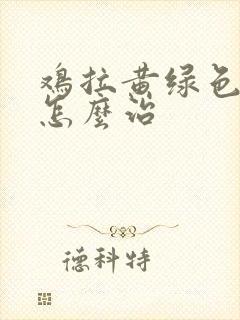 鸡拉黄绿色
怎麼治
德科特